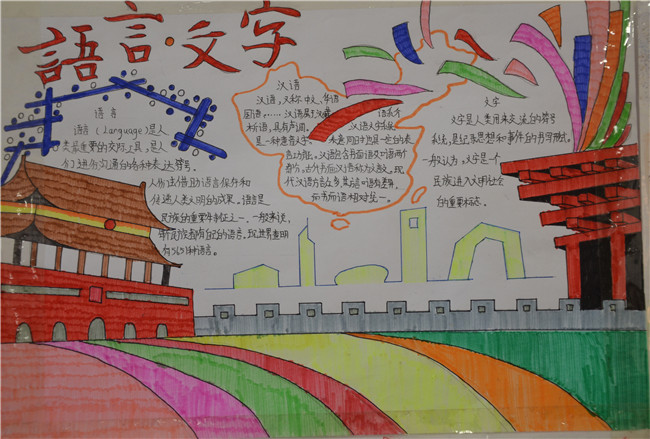 語言·文字
语言
语言(Language)是人
类最重要的交际工具,是人
们进行沟通的各种表达符号。
人们借助语言保存和
传递人类文明的成果。语言是
民族的重要特征之一。一般来说,
各个民族都有自己的语言。现世界查明
有5651种语言。
汉语
汉语,又称中文、华语
国语,……汉语属于汉藏
语系,具有声调。
汉语文字
是一种意音文字,
表意同时也具一定的表
音功能。汉语包含书面语及口语两
部分。古代书面汉语称为文言文。现
代汉语方言
和书面语相对统一。
文字
文字是人类用来交流的符号
系统,是记录思想和事件的书写形式。
一般认为,文字是一个
民族进入文明社会
的重要标志。